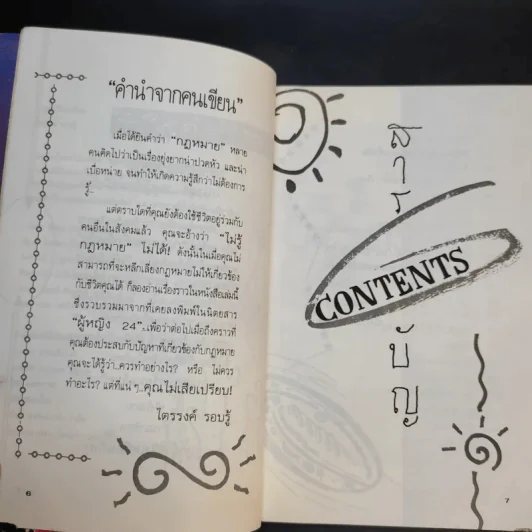 “คำนำจากคนเขียน”
เมื่อได้ยินคำว่า “กฎหมาย” หลาย
คนคิดไปว่าเป็นเรื่องยุ่งยากน่าปวดหัว และน่า
เบื่อหน่าย จนทำให้เกิดความรู้สึกว่าไม่ต้องการ
รู้..
แต่ตราบใดที่คุณยังต้องใช้ชีวิตอยู่ร่วมกับ
คนอื่นในสังคมแล้ว คุณจะอ้างว่า “ไม่รู้
กฎหมาย” ไม่ได้! ดังนั้นในเมื่อคุณไม่
สามารถที่จะหลีกเลี่ยงกฎหมายไม่ให้เกี่ยวข้อง
กับชีวิตคุณได้ ก็ลองอ่านเรื่องราวในหนังสือเล่มนี้
ซึ่งรวบรวมมาจากที่เคยลงพิมพ์ในนิตยสาร
“ผู้หญิง 24”..เพื่อว่าต่อไปเมื่อถึงคราวที่
คุณต้องประสบกับปัญหาที่เกี่ยวข้องกับกฎหมาย
คุณจะได้รู้ว่า..ควรทำอย่างไร? หรือ ไม่ควร
ทำอะไร? แต่ที่แน่ ๆ..คุณไม่เสียเปรียบ!
ไตรรงค์ รอบรู้
6
สารบัญ
CONTENTS
7